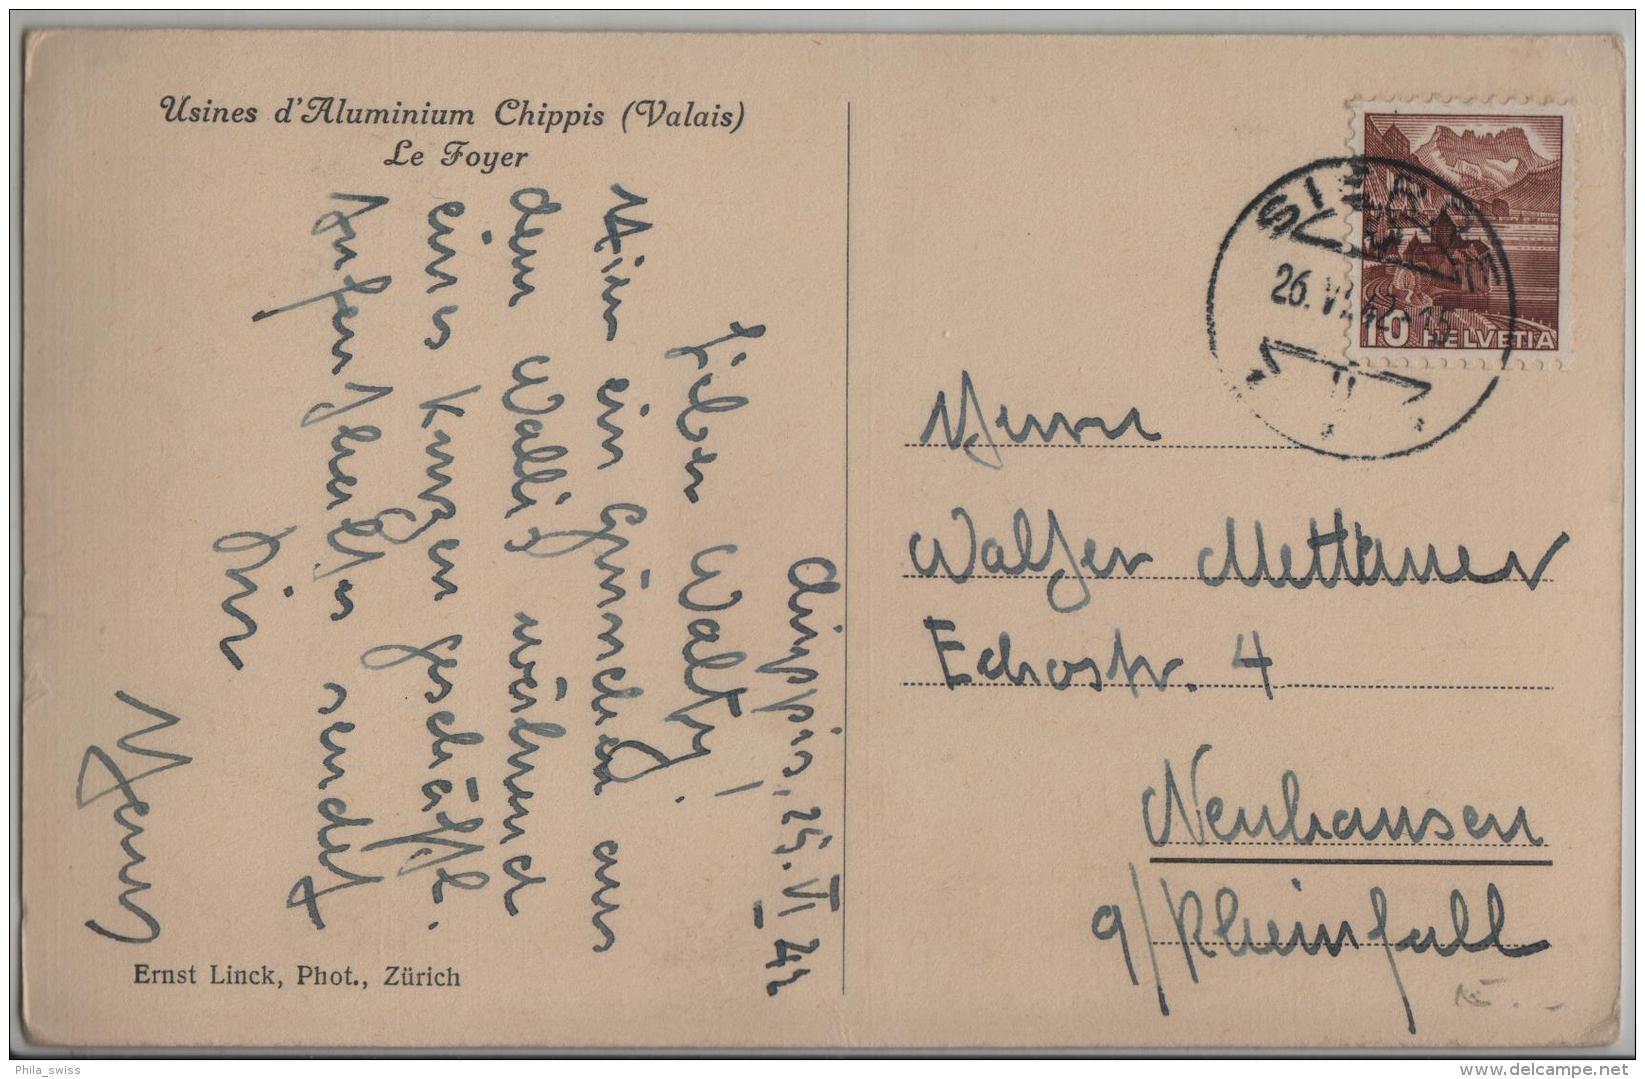 Usines d'Aluminium Chippis (Valais)
Le Foyer
Chippis, 25. VI 42
Lieber Walty!
Hier ein Grüsschen aus
dem Wallis während
eines Kurzen geschäftl.
Aufenthaltes sendet
Dir
Ernst Linck, Phot., Zürich
SIERRE
26. VI. 42 - 15
10 HELVETIA
Herrn
Walter Mettauer
Echostr. 4
Neuhausen
a/Rheinfall
Phila_swiss
www.delcampe.net